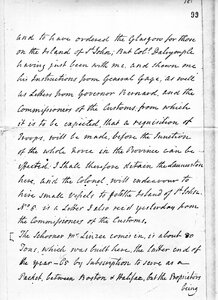 99
and to have ordered the Glasgow for those
on the Island of St. John; But Coll. Dalrymple
having just been with me, and shown me
his Instructions from General Gage, as well
as Letters from Governor Bernard, and the
Commissioners of the Customs, from which
it is to be expected, that a requisition of
Troops, will be made, before the Junction
of the whole Force in the Province can be
effected. I shall therefore detain the Launceston
here, and the Colonel, will endeavour to
hire small Vessels to fetch the Island of St. Johns.
No. 5. is a Letter I also rec'd yesterday from
the Commissioners of the Customs.
The Schooner Mr. Linzee comes in, is about 90
Tons, which was built here, the latter end of
the year —65 by Subscription to serve as a
Packet, between Boston & Halifax, but the Proprietors
being